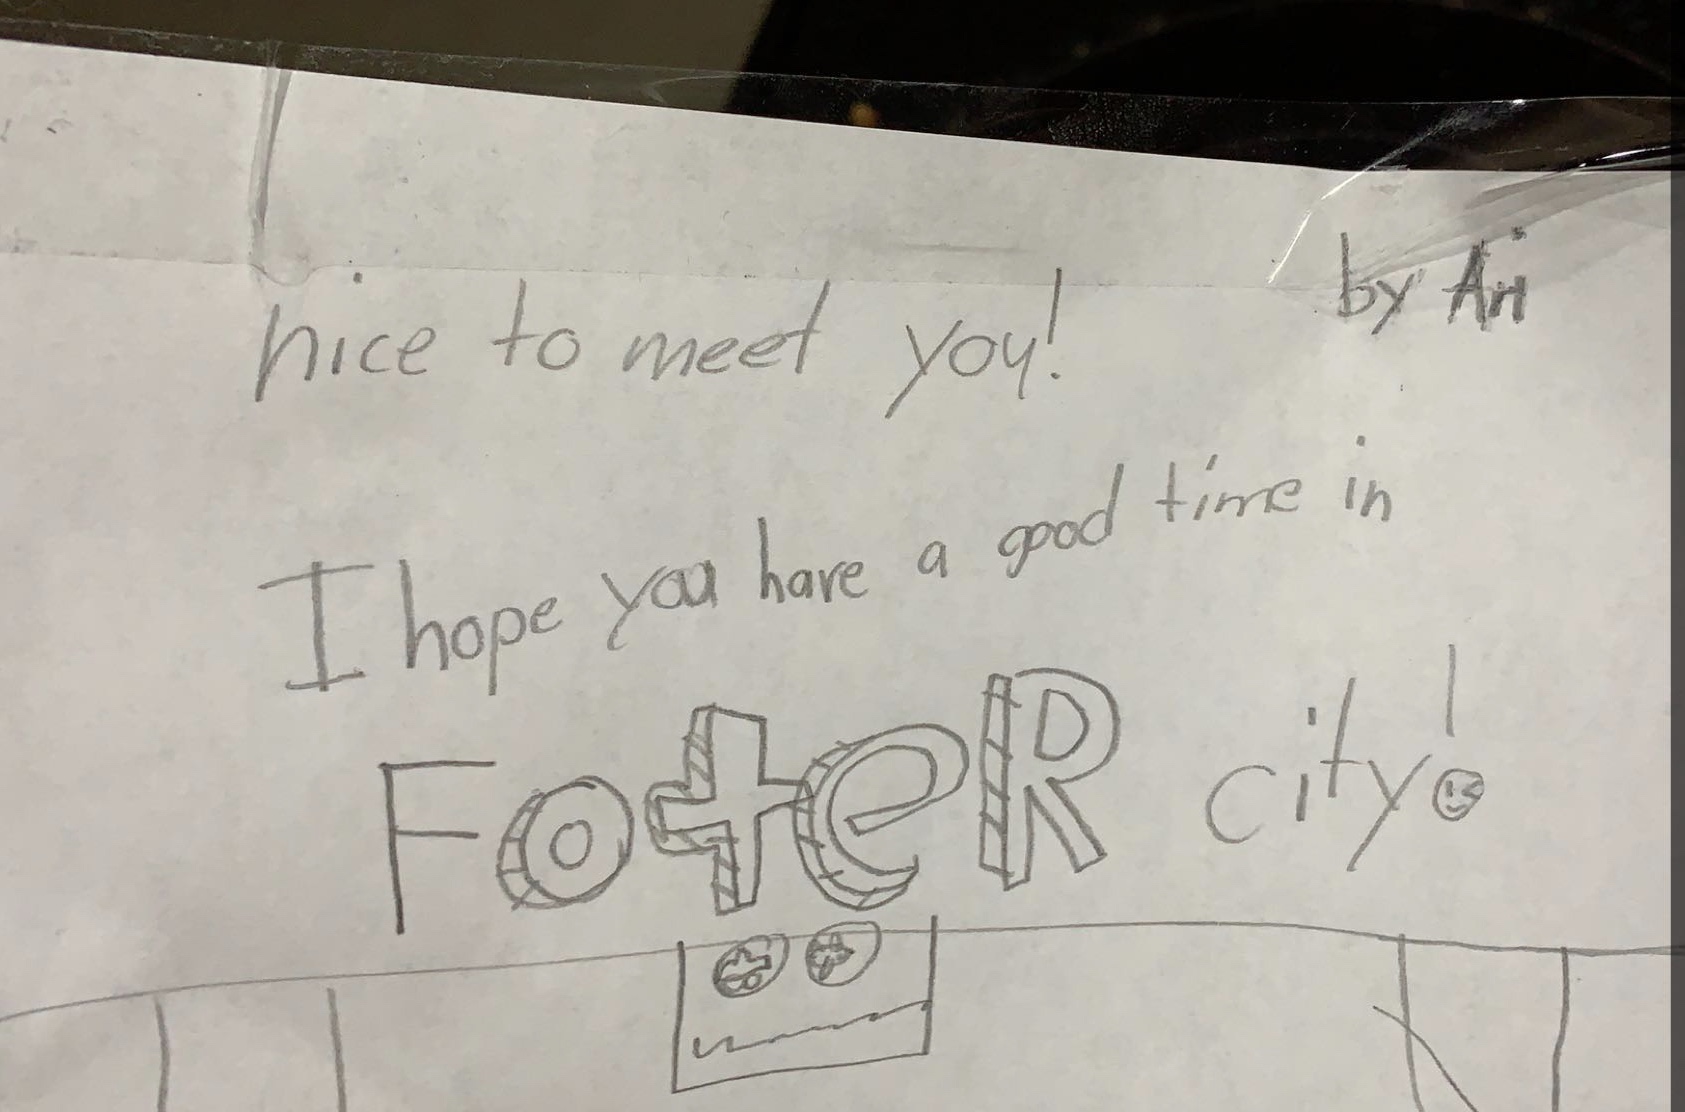 by Ari
nice to meet you!
I hope you have a good time in
FoteR city!